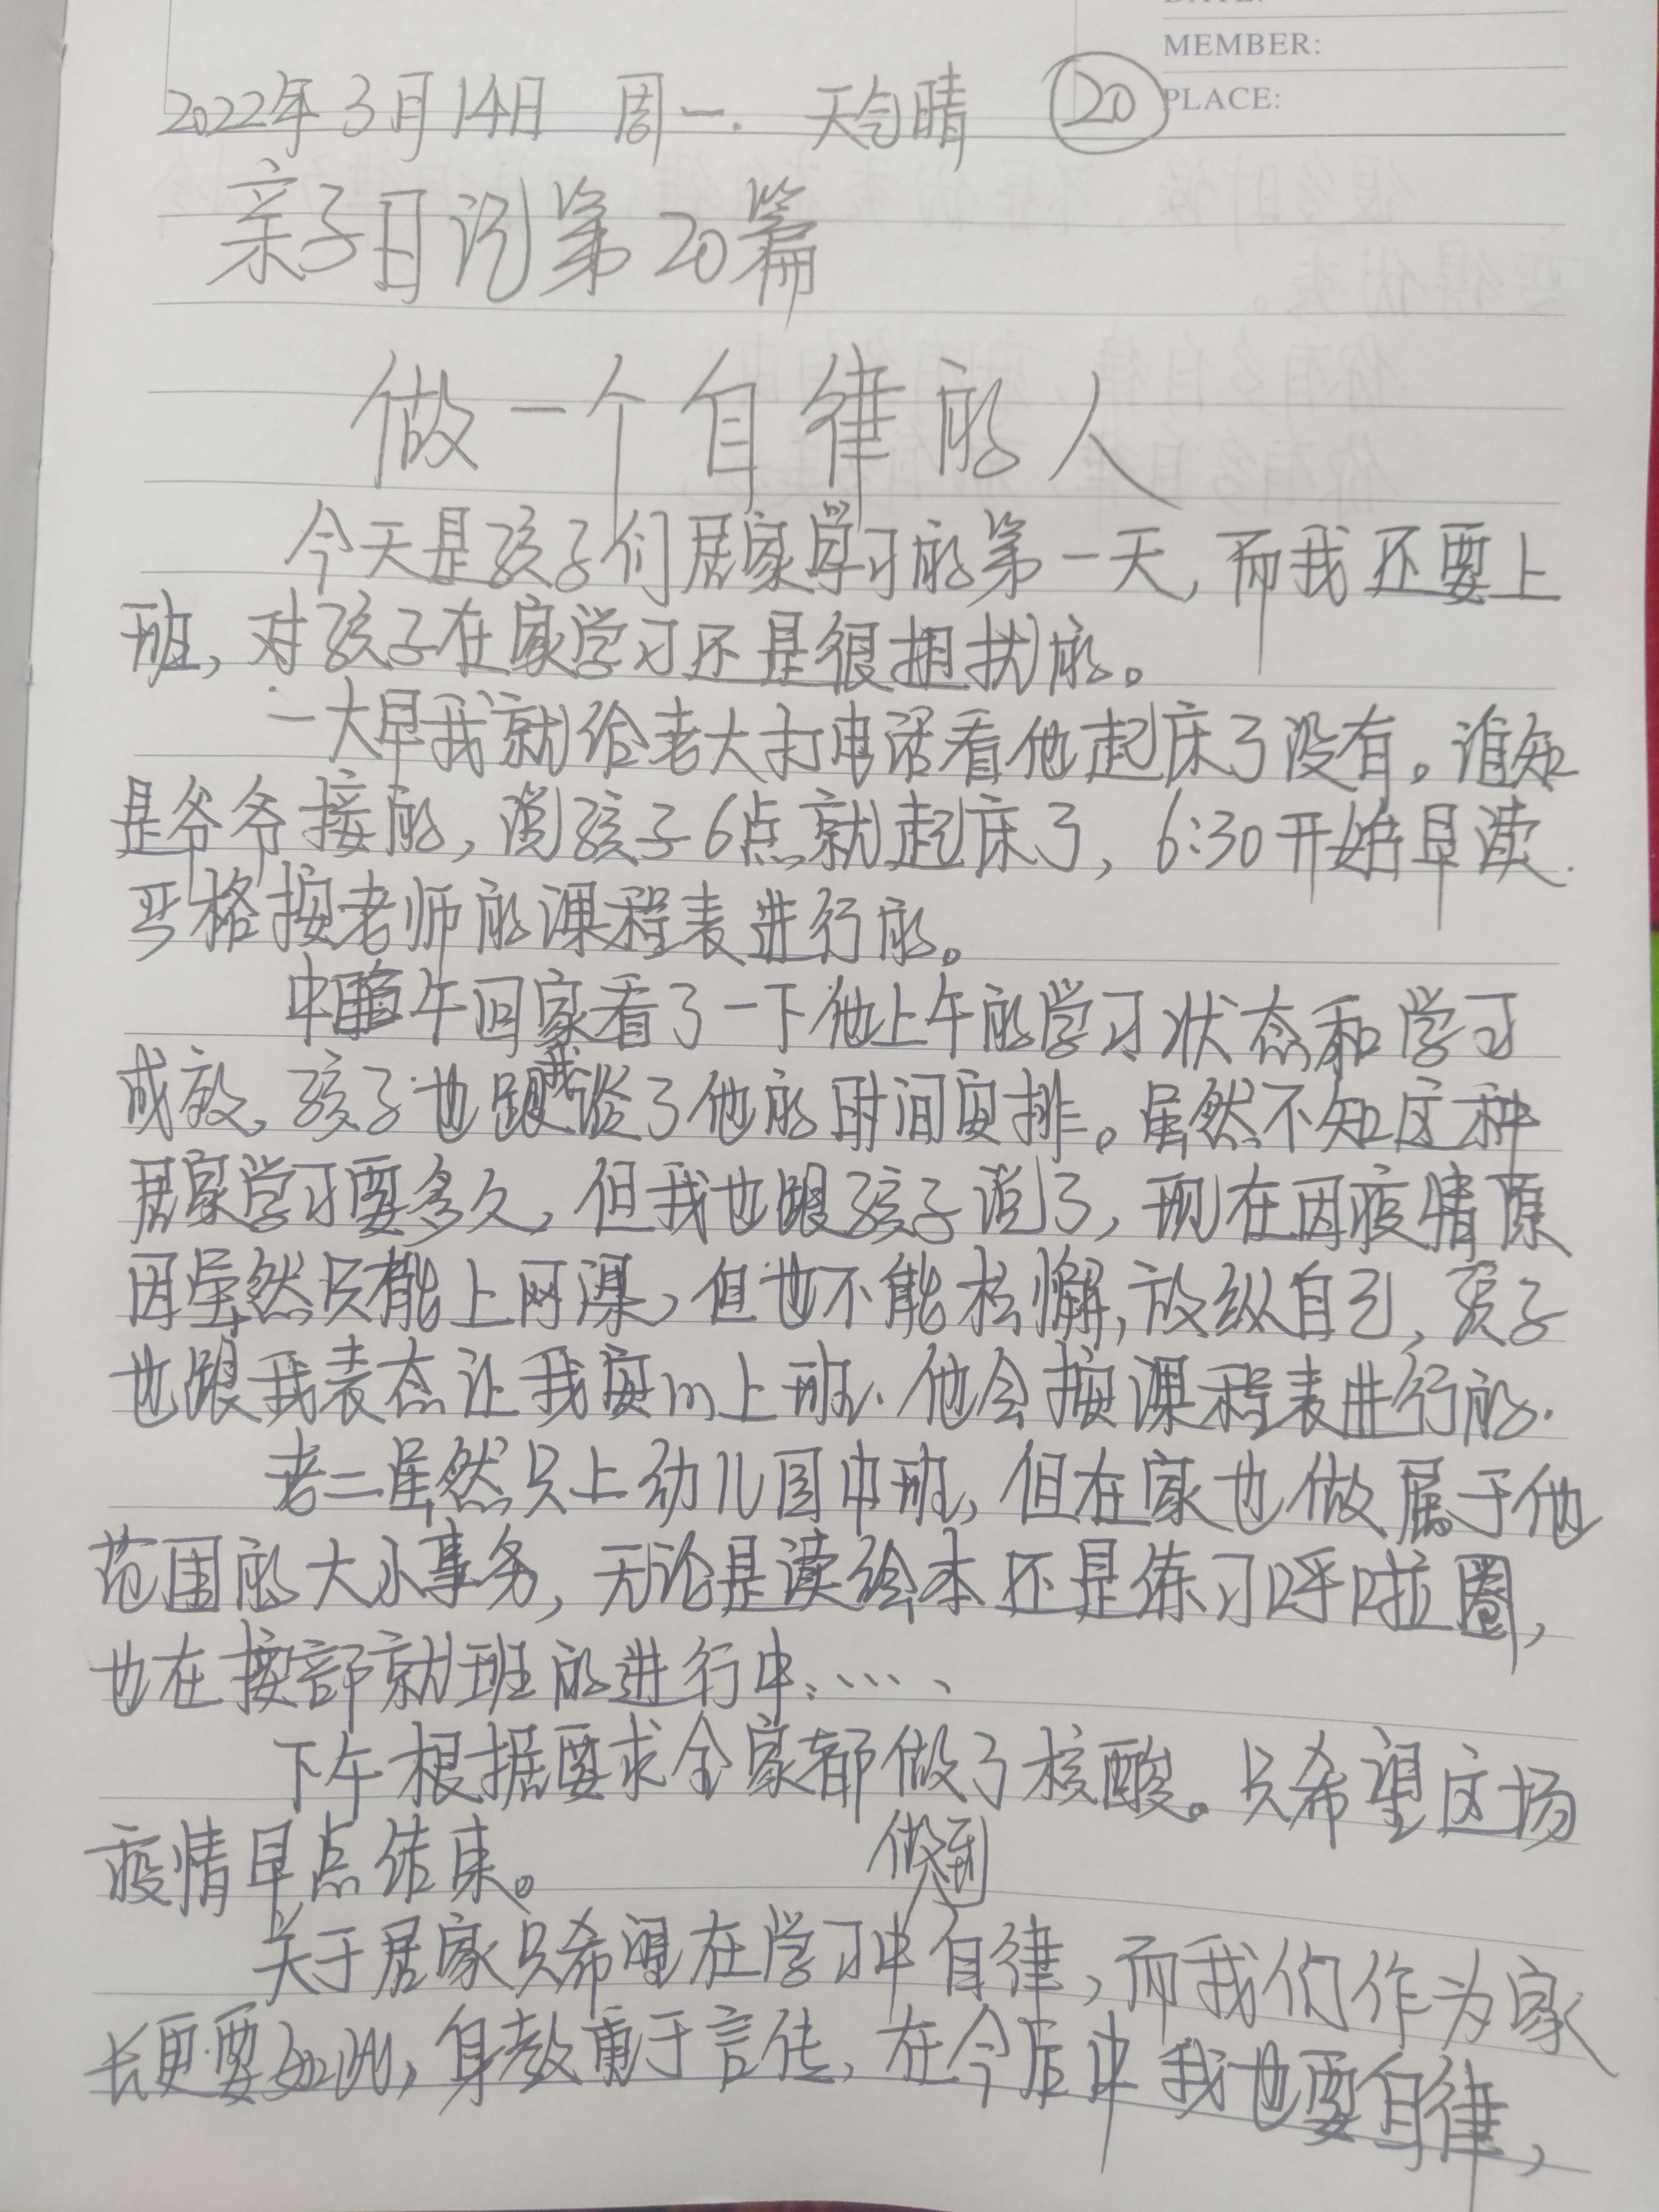 MEMBER:
2022年3月14日 周一. 天气晴 20 PLACE:
亲子日记第20篇
做一个自律的人
今天是孩子们居家学习的第一天,而我还要上
班,对孩子在家学习还是很担扰的。
一大早我就给老大打电话看他起床了没有。谁知
是爷爷接的,说孩子6点就起床了,6:30开始早读.
严格按老师的课程表进行的。
中午回家看了一下他上午的学习状态和学习
成效,孩子也跟我谈了他的时间安排。虽然不知这种
居家学习要多久,但我也跟孩子说了,现在因疫情原
因虽然只能上网课,但也不能松懈,放纵自己,孩子
也跟我表态让我安心上班.他会按课程表进行的.
老二虽然只上幼儿园中班,但在家也做属于他
范围的大小事务,无论是读绘本还是练习呼啦圈,
也在按部就班的进行中……
下午根据要求全家都做了核酸。只希望这场
疫情早点结束。
关于居家只希望在学习中做到自律,而我们作为家
长更要如此,身教重于言传,在今后中我也要自律,